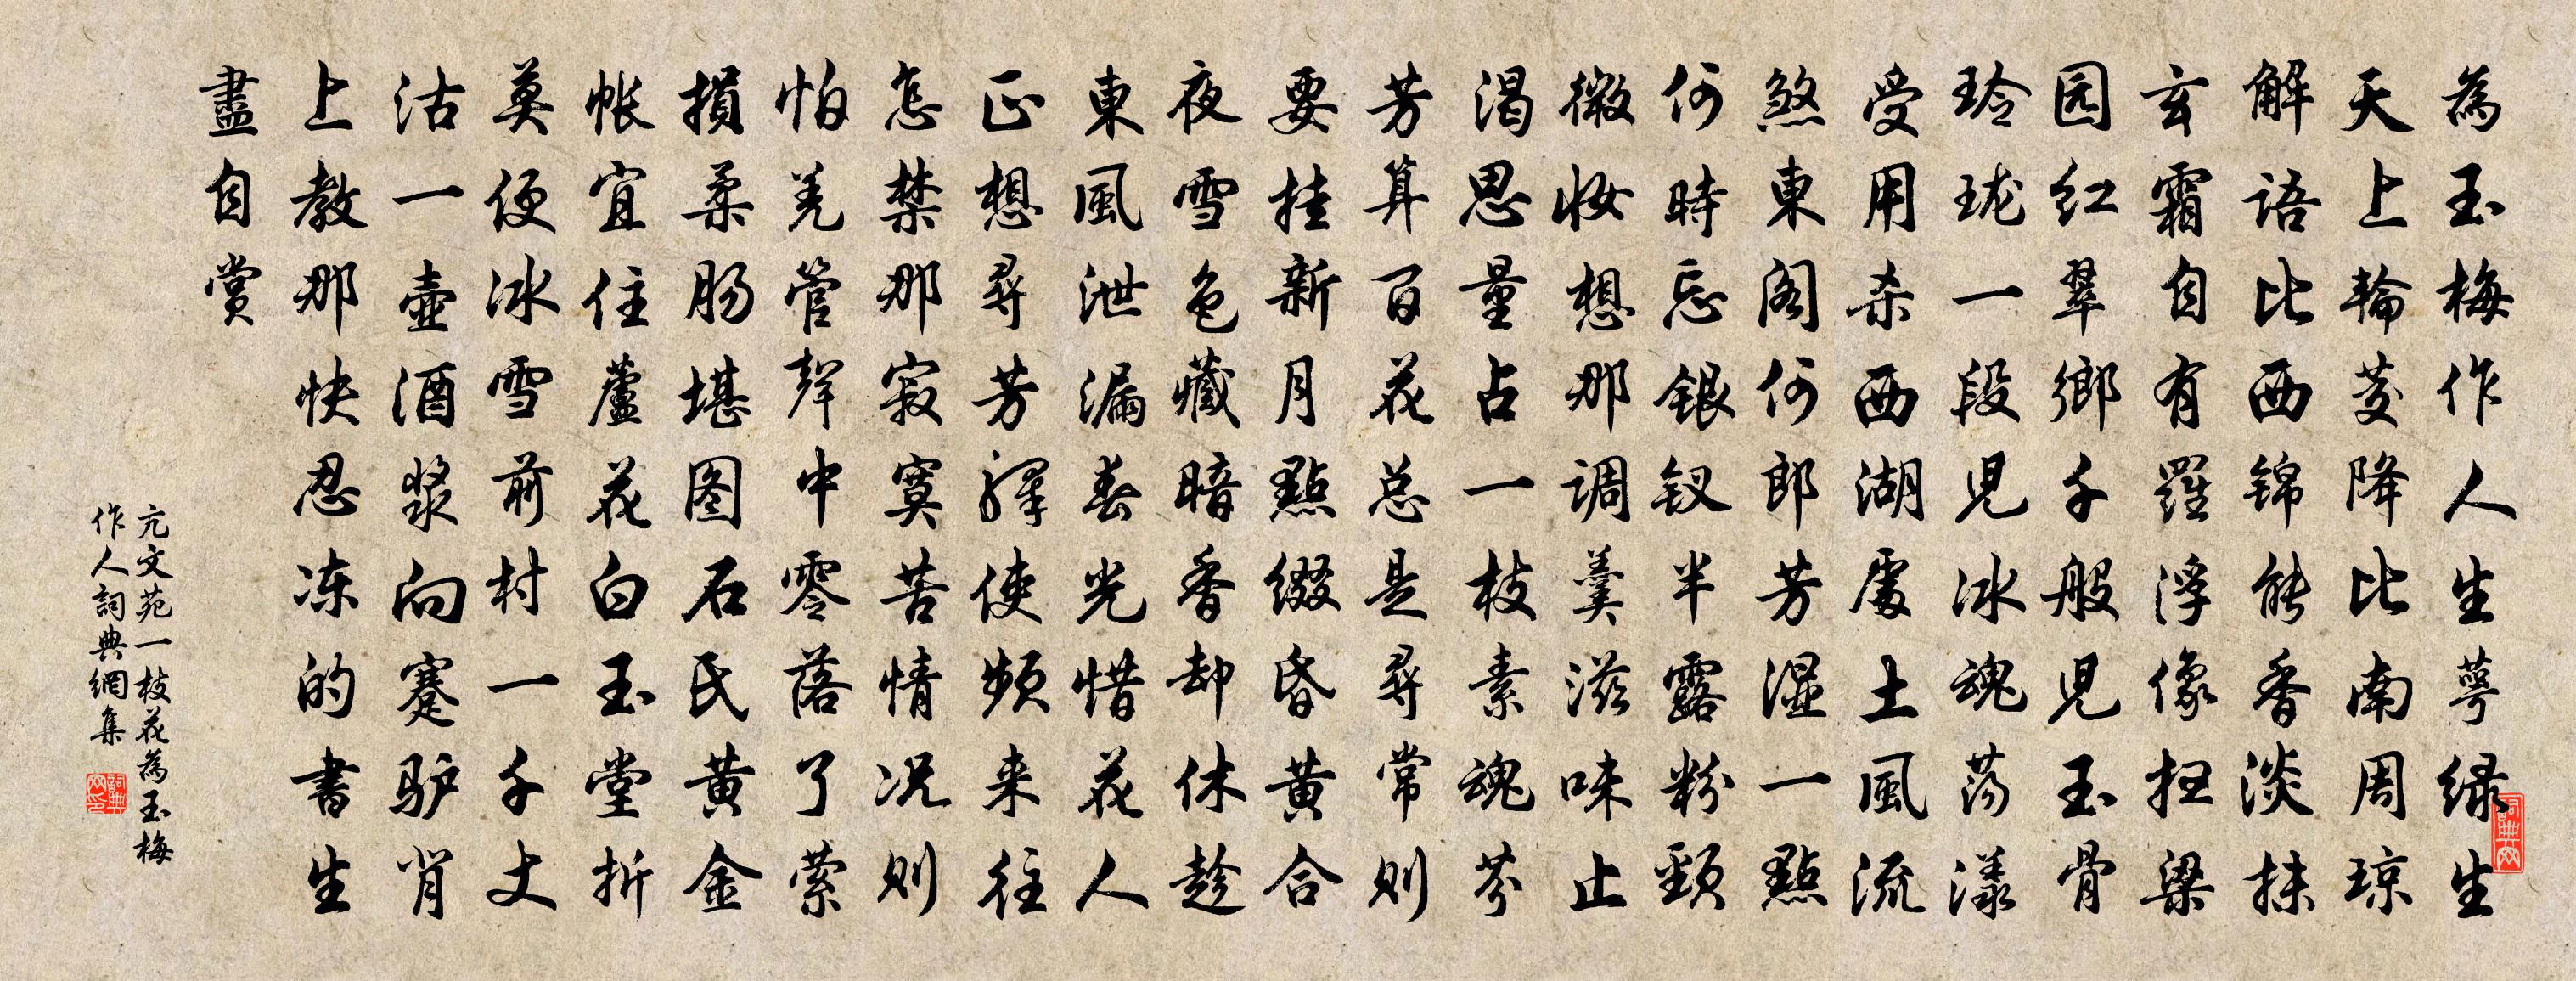 為玉梅作人生萼绿生
天上輪降比南周琼
解語比西锦能香淡抹
玄霜自有羅浮像扭梁
园红翠鄉千般児玉骨
玲珑一段児冰魂荡漾
受用杀西湖處土風流
煞東阁何郎芳湿一點
何時忘银钗半露粉頸
微妝想那调羹滋味止
渴思量占一枝素魂芬
芳算百花总是尋常则
要挂新月點缀昏黄合
夜雪色藏暗香却休趁
東風泄漏春光惜花人
正想尋芳驛使频来往
怎禁那寂寞苦情况则
怕羌管聲中零落了萦
損柔肠堪图石氏黄金
帐宜住蘆花白玉堂折
莫便冰雪前村一千丈
沽一壺酒浆向蹇驴肖
上教那快忍冻的書生
盡自赏
亢文苑一枝花為玉梅
作人詞典網集
詞典网
詞典网印